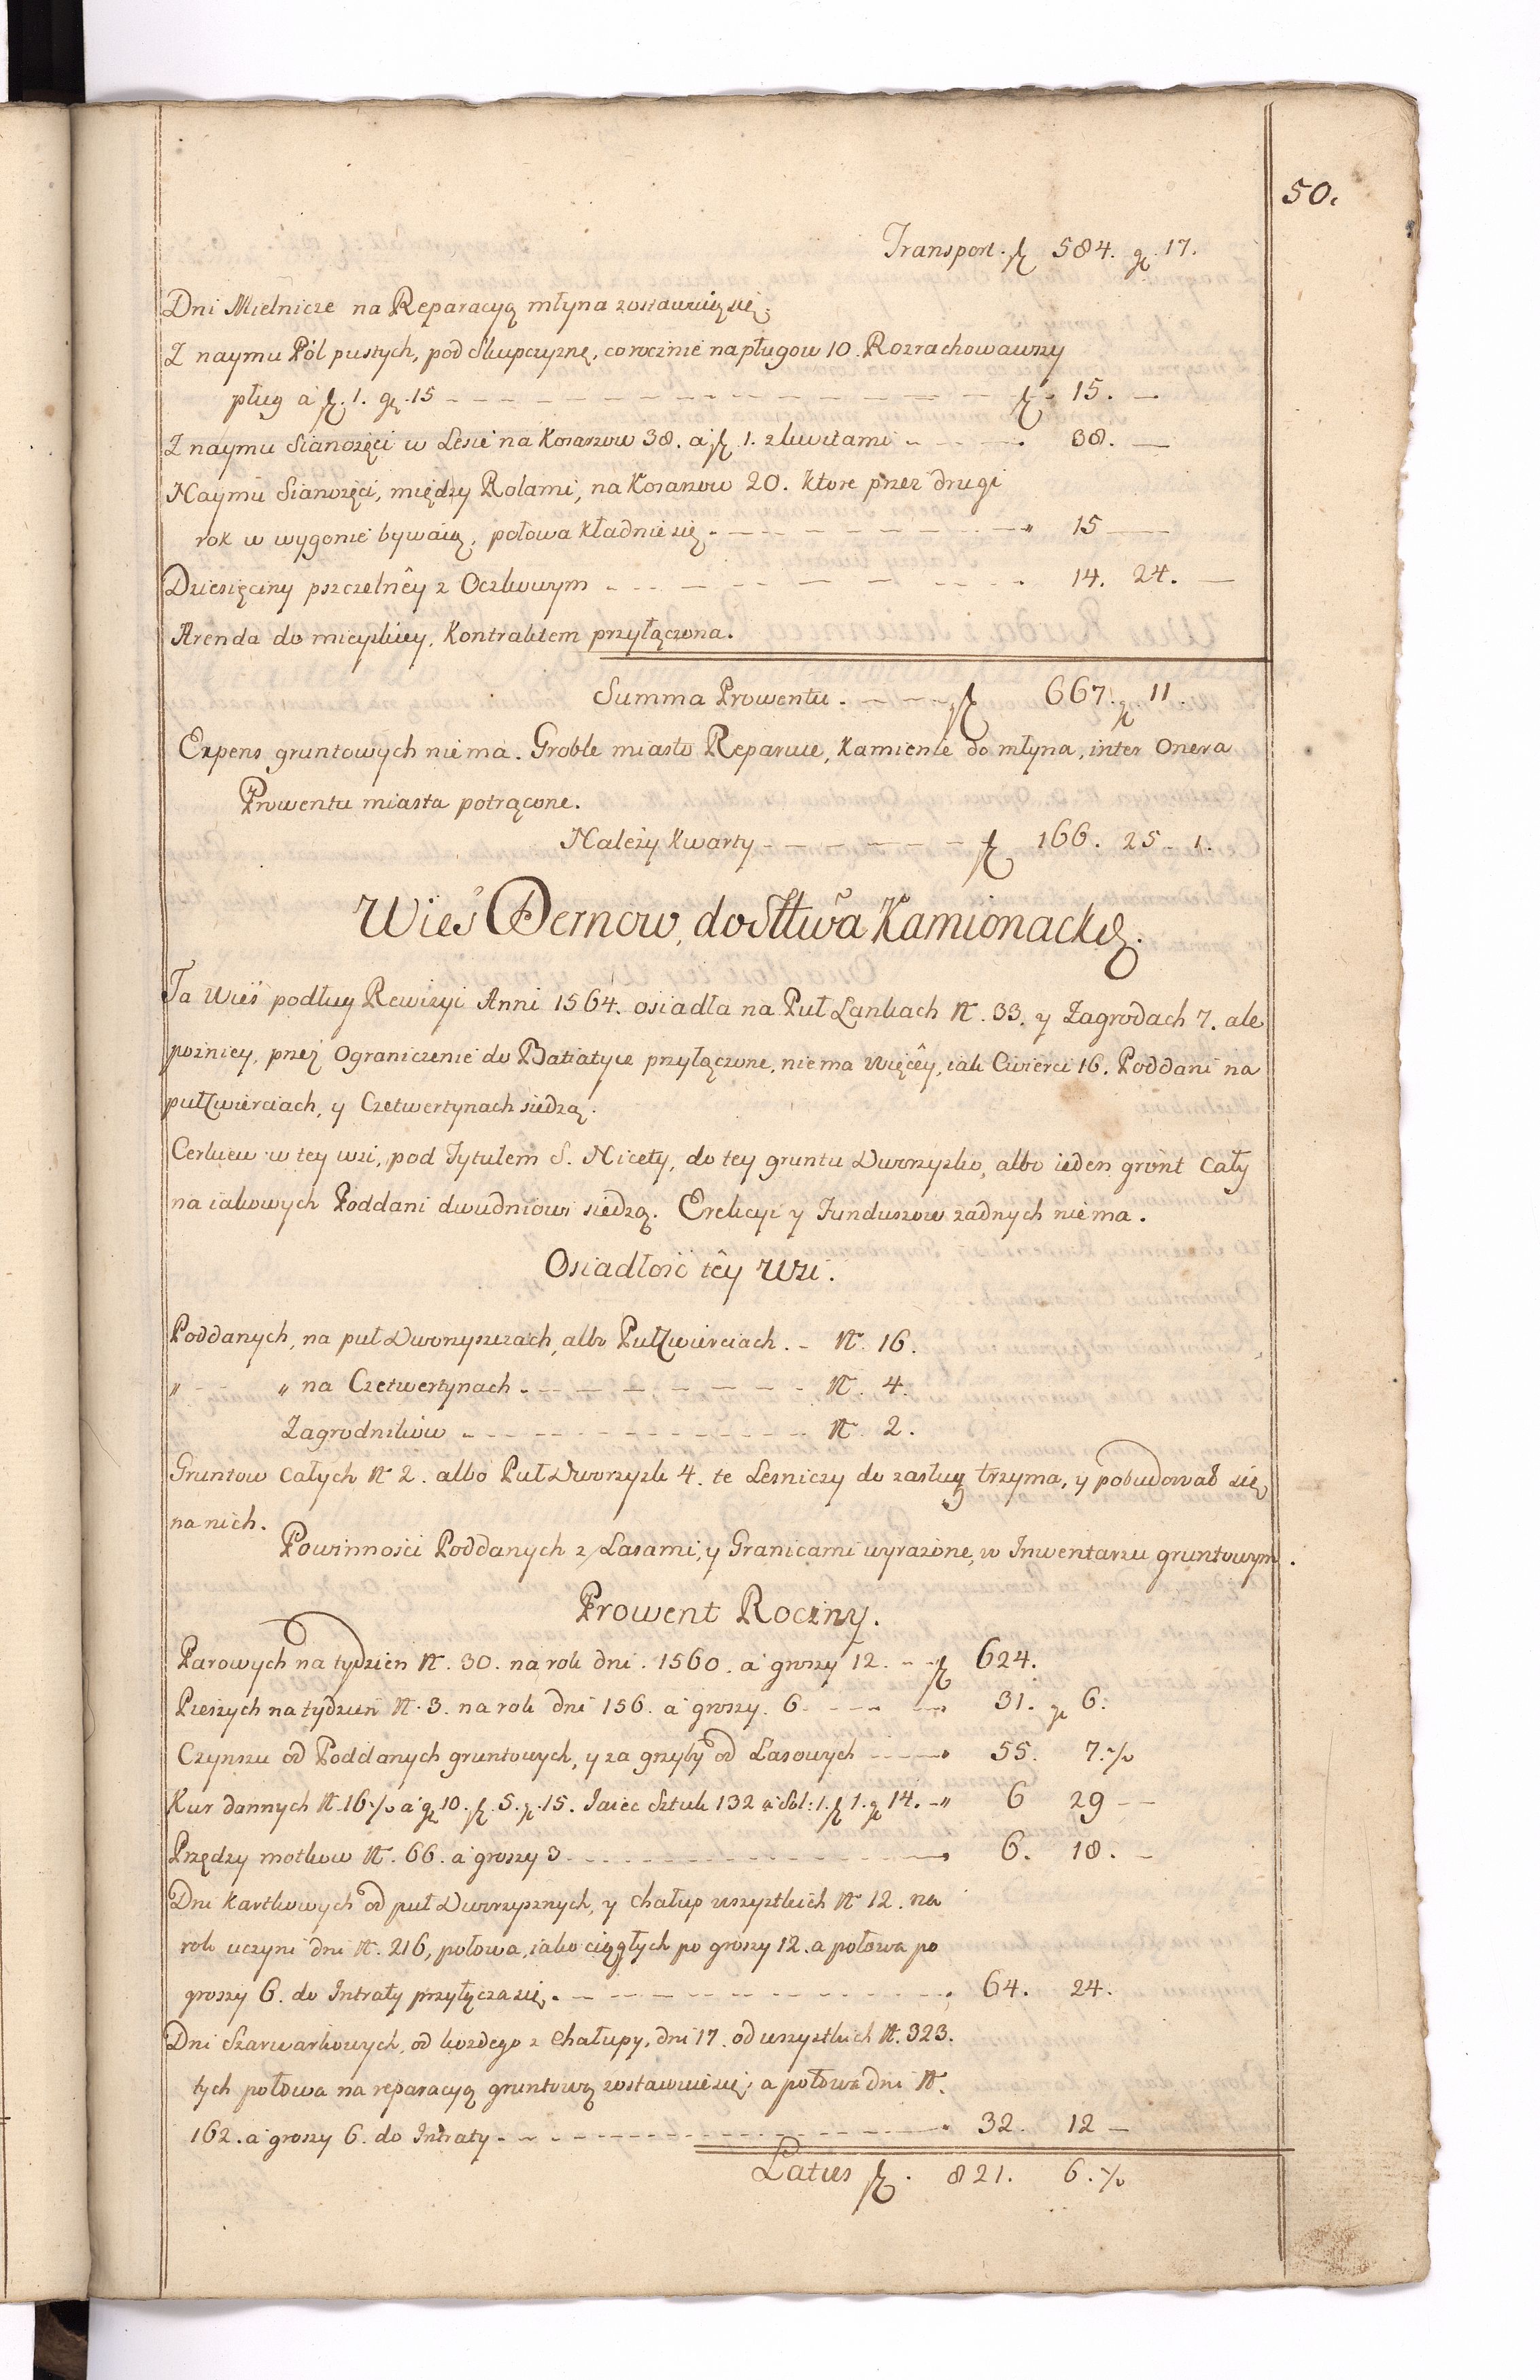 50.
Transport. fl 584. gr. 17.
Dni Mielnicze na Reparacyą młyna zostawuią się.
Z naymu Pól pustych, pod Skupczyznę, corocznie na pługow 10. Rozrachowawszy
pług a fl. 1. gr. 15 fl. 15. —
Z naymu Sianożęci w Lesie na Kosarzow 38. a fl 1. z kwitami 38. —
Naymu Sianożęci, między Rolami, na Kosarzow 20. ktore przez drugi
rok w wygonie bywaią, połowa kładnie się 15 —
Dziesięciny pszczelnêy z Oczkowym 14. 24. —
Arenda do mieyskiey, Kontraktem przyłączona.
Summa Prowentu. fl 667. gr 11.
Expens gruntowych niema. Groble miasto Reparuie, Kamienie do młyna, inter Onera
Prowentu miasta potrącone.
Należy Kwarty fl 166. 25. 1.
Wieś Dernow, do Sttwa Kamionackę.
Ta Wieś podług Rewizyi Anni 1564. osiadła na Puł Łankach N. 33. y Zagrodach 7. ale
pozniey, przez Ograniczenie do Batiatycz przyłączone, niema więcêy, iak Cwierci 16. Poddani na
pułCwierciach, y Czetwertynach siedzą.
Cerkiew w tey wsi, pod Tytułem S. Nicety, do tey gruntu Dworzysko, albo ieden grunt Cały
na iakowych Poddani dwudniowi siedzą. Erekcyi y Funduszow żadnych niema.
Osiadłość têy Wsi.
Poddanych, na puł Dworzyszczach, albo PułCwierciach. N. 16.
" " na Czetwertynach N. 4.
Zagrodnikow N. 2.
Gruntow Całych N 2. albo Puł Dworzysk 4. te Lesniczy do zasług trzyma, y pobudował się
na nich.
Powinności Poddanych z Lasami, y Granicami wyrażone, w Inwentarzu gruntowym.
Prowent Roczny.
Parowych na tydzień N. 30. na rok dni. 1560. a groszy 12. fl 624.
Pieszych na tydzień N. 3. na rok dni 156. a groszy. 6. 31. gr 6.
Czynszu od Poddanych gruntowych, y za grzyby od Lasowych 55. 7.%
Kur dannych N. 16% a gr 10. fl. 5. gr. 15. Jaiec Sztuk 132 a Sol: 1. fl 1. gr 14. 6 29 —
Przędzy motkow N. 66. a groszy 3 6. 18. —
Dni Kartkowych od puł Dworzysznych, y chałup wszystkich N 12. na
rok uczyni dni N. 216, połowa, iako ciągłych po groszy 12. a połowa po
groszy 6. do Intraty przyłącza się. 64. 24.
Dni Szarwarkowych, od kożdego z Chałupy, dni 17. od wszystkich N. 323.
tych połowa na reparacyą gruntową zostawuie się, a połowa dni N.
162. a groszy 6. do Intraty 32. 12 —
Latus fl. 821. 6.%